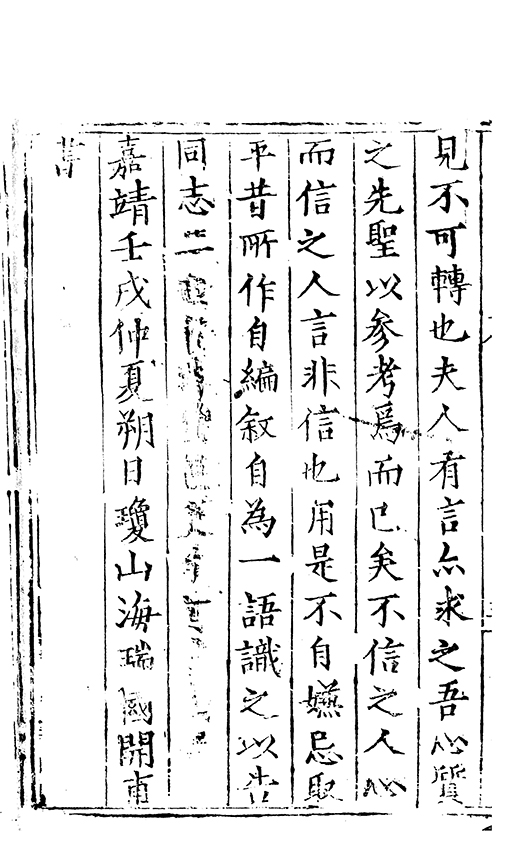 見不可轉也夫人有言亦求之吾心質
之先聖以參考焉而已矣不信之人心
而信之人言非信也用是不自嫌忌取
平昔所作自編叙自為一語識之以告
同志云
嘉靖壬戌仲夏朔日瓊山海瑞國開甫
書